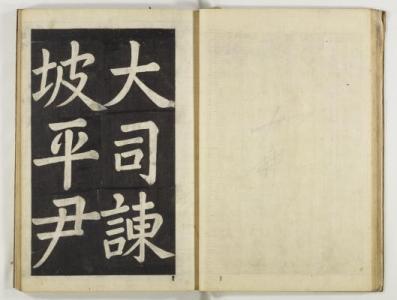 大司諫
坡平尹